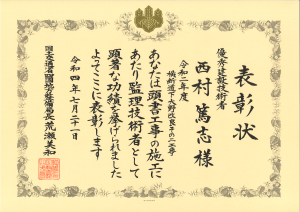 表彰状
優秀建設技術者
西村篤志様
令和二年度
横断道下大野改良その二工事
あなたは頭書工事の施工に
あたり監理技術者として
顕著な功績を挙げられました
よってここに表彰します
令和四年七月二十一日
国土交通省関東地方整備局長 荒瀬美和